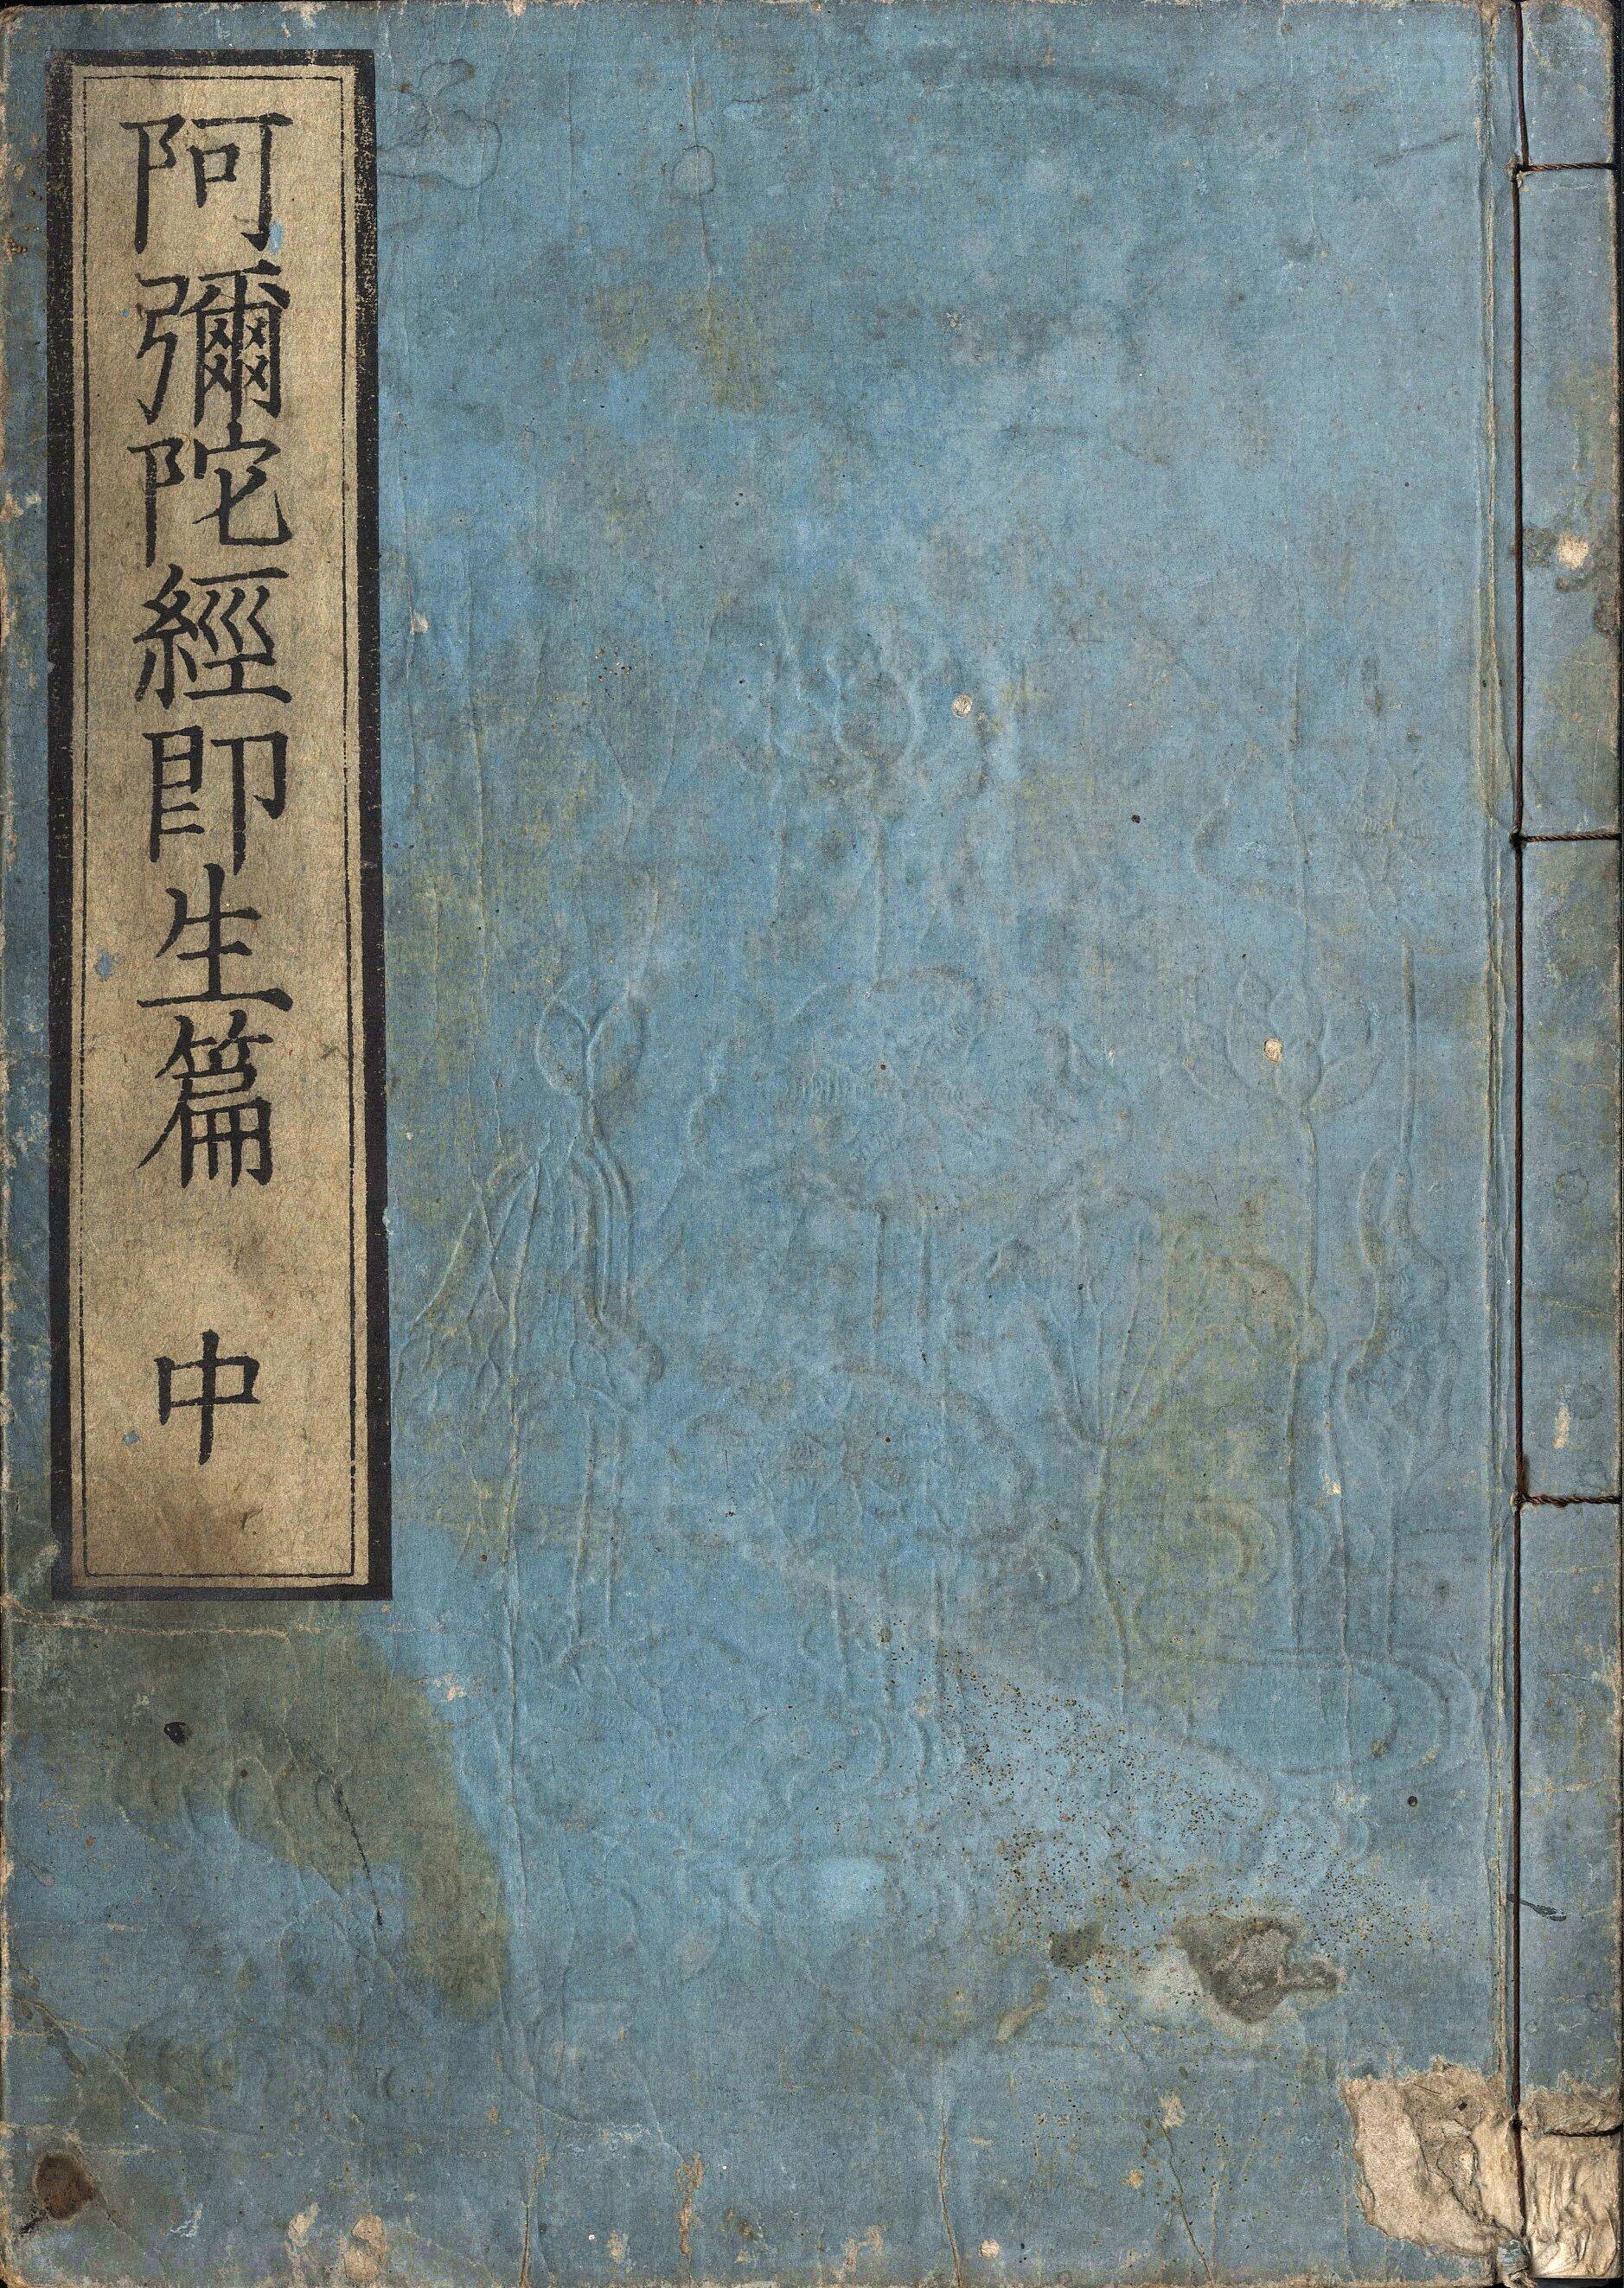 阿彌陀經卽生篇 中